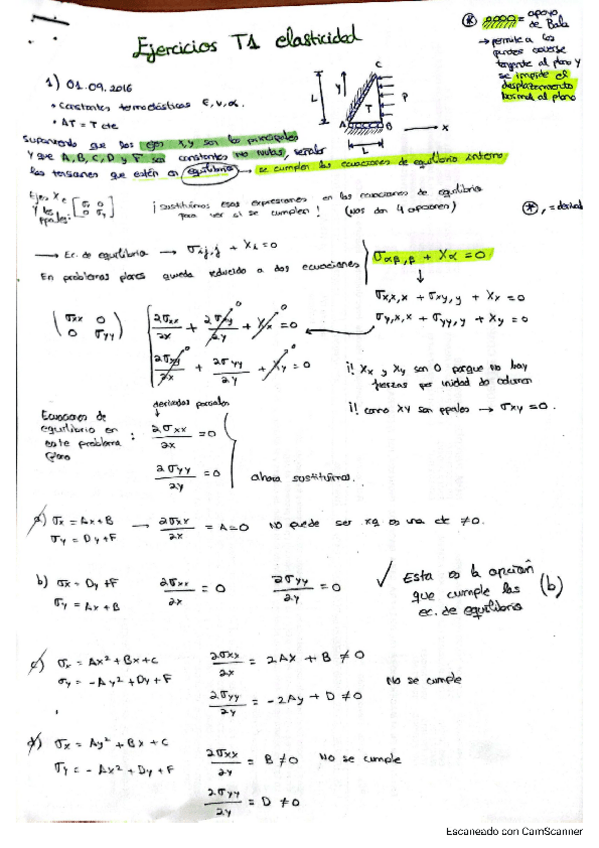 Ejercicios T1 elasticidad
⊛ = apoyo de Bola
→ permite a los puntos moverse tangente al plano y se impide el desplazamiento normal al plano
1) 01.09.2016
• Constantes termoelásticas E, ν, α.
• ΔT = T cte
L y C T P A B L x
Suponiendo que los ejes X,Y son los principales
y que A, B, C, D y F son constantes no nulas, señalar
las tensiones que estén en equilibrio → se cumplen las ecuaciones de equilibrio interno
Ejes X e Y los ppales: [σx 0 0 σy]
¡Sustituimos esas expresiones en las ecuaciones de equilibrio
para ver si se cumplen! (Nos dan 4 opciones)
⊛, = derivada
→ Ec. de equilibrio → σij,j + Xi = 0
En problemas planos queda reducido a dos ecuaciones
σαβ,β + Xα = 0
↓
σxx,x + σxy,y + Xx = 0
σyx,x + σyy,y + Xy = 0
(σxx 0 0 σyy)
∂σxx/∂x + ∂σxy/∂y + Xx = 0
∂σxy/∂x + ∂σyy/∂y + Xy = 0
¡! Xx y Xy son 0 porque no hay
fuerzas por unidad de volumen
¡! como XY son ppales → σxy = 0.
Ecuaciones de equilibrio en este problema plano:
derivadas parciales
↓
∂σxx/∂x = 0
∂σyy/∂y = 0
ahora sustituimos.
a) σx = Ax+B → ∂σxx/∂x = A = 0 No puede ser xq es una cte ≠ 0.
σy = Dy+F
b) σx = Dy+F ∂σxx/∂x = 0 ∂σyy/∂y = 0 ✓
σy = Ax+B
Esta es la opción
que cumple las (b)
ec. de equilibrio
c) σx = Ax² + Bx + C ∂σxx/∂x = 2Ax + B ≠ 0
σy = -Ay² + Dy + F ∂σyy/∂y = -2Ay + D ≠ 0
No se cumple
d) σx = Ay² + Bx + C ∂σxx/∂y = B ≠ 0 No se cumple
σy = -Ax² + Dy + F
∂σyy/∂y = D ≠ 0
Escaneado con CamScanner